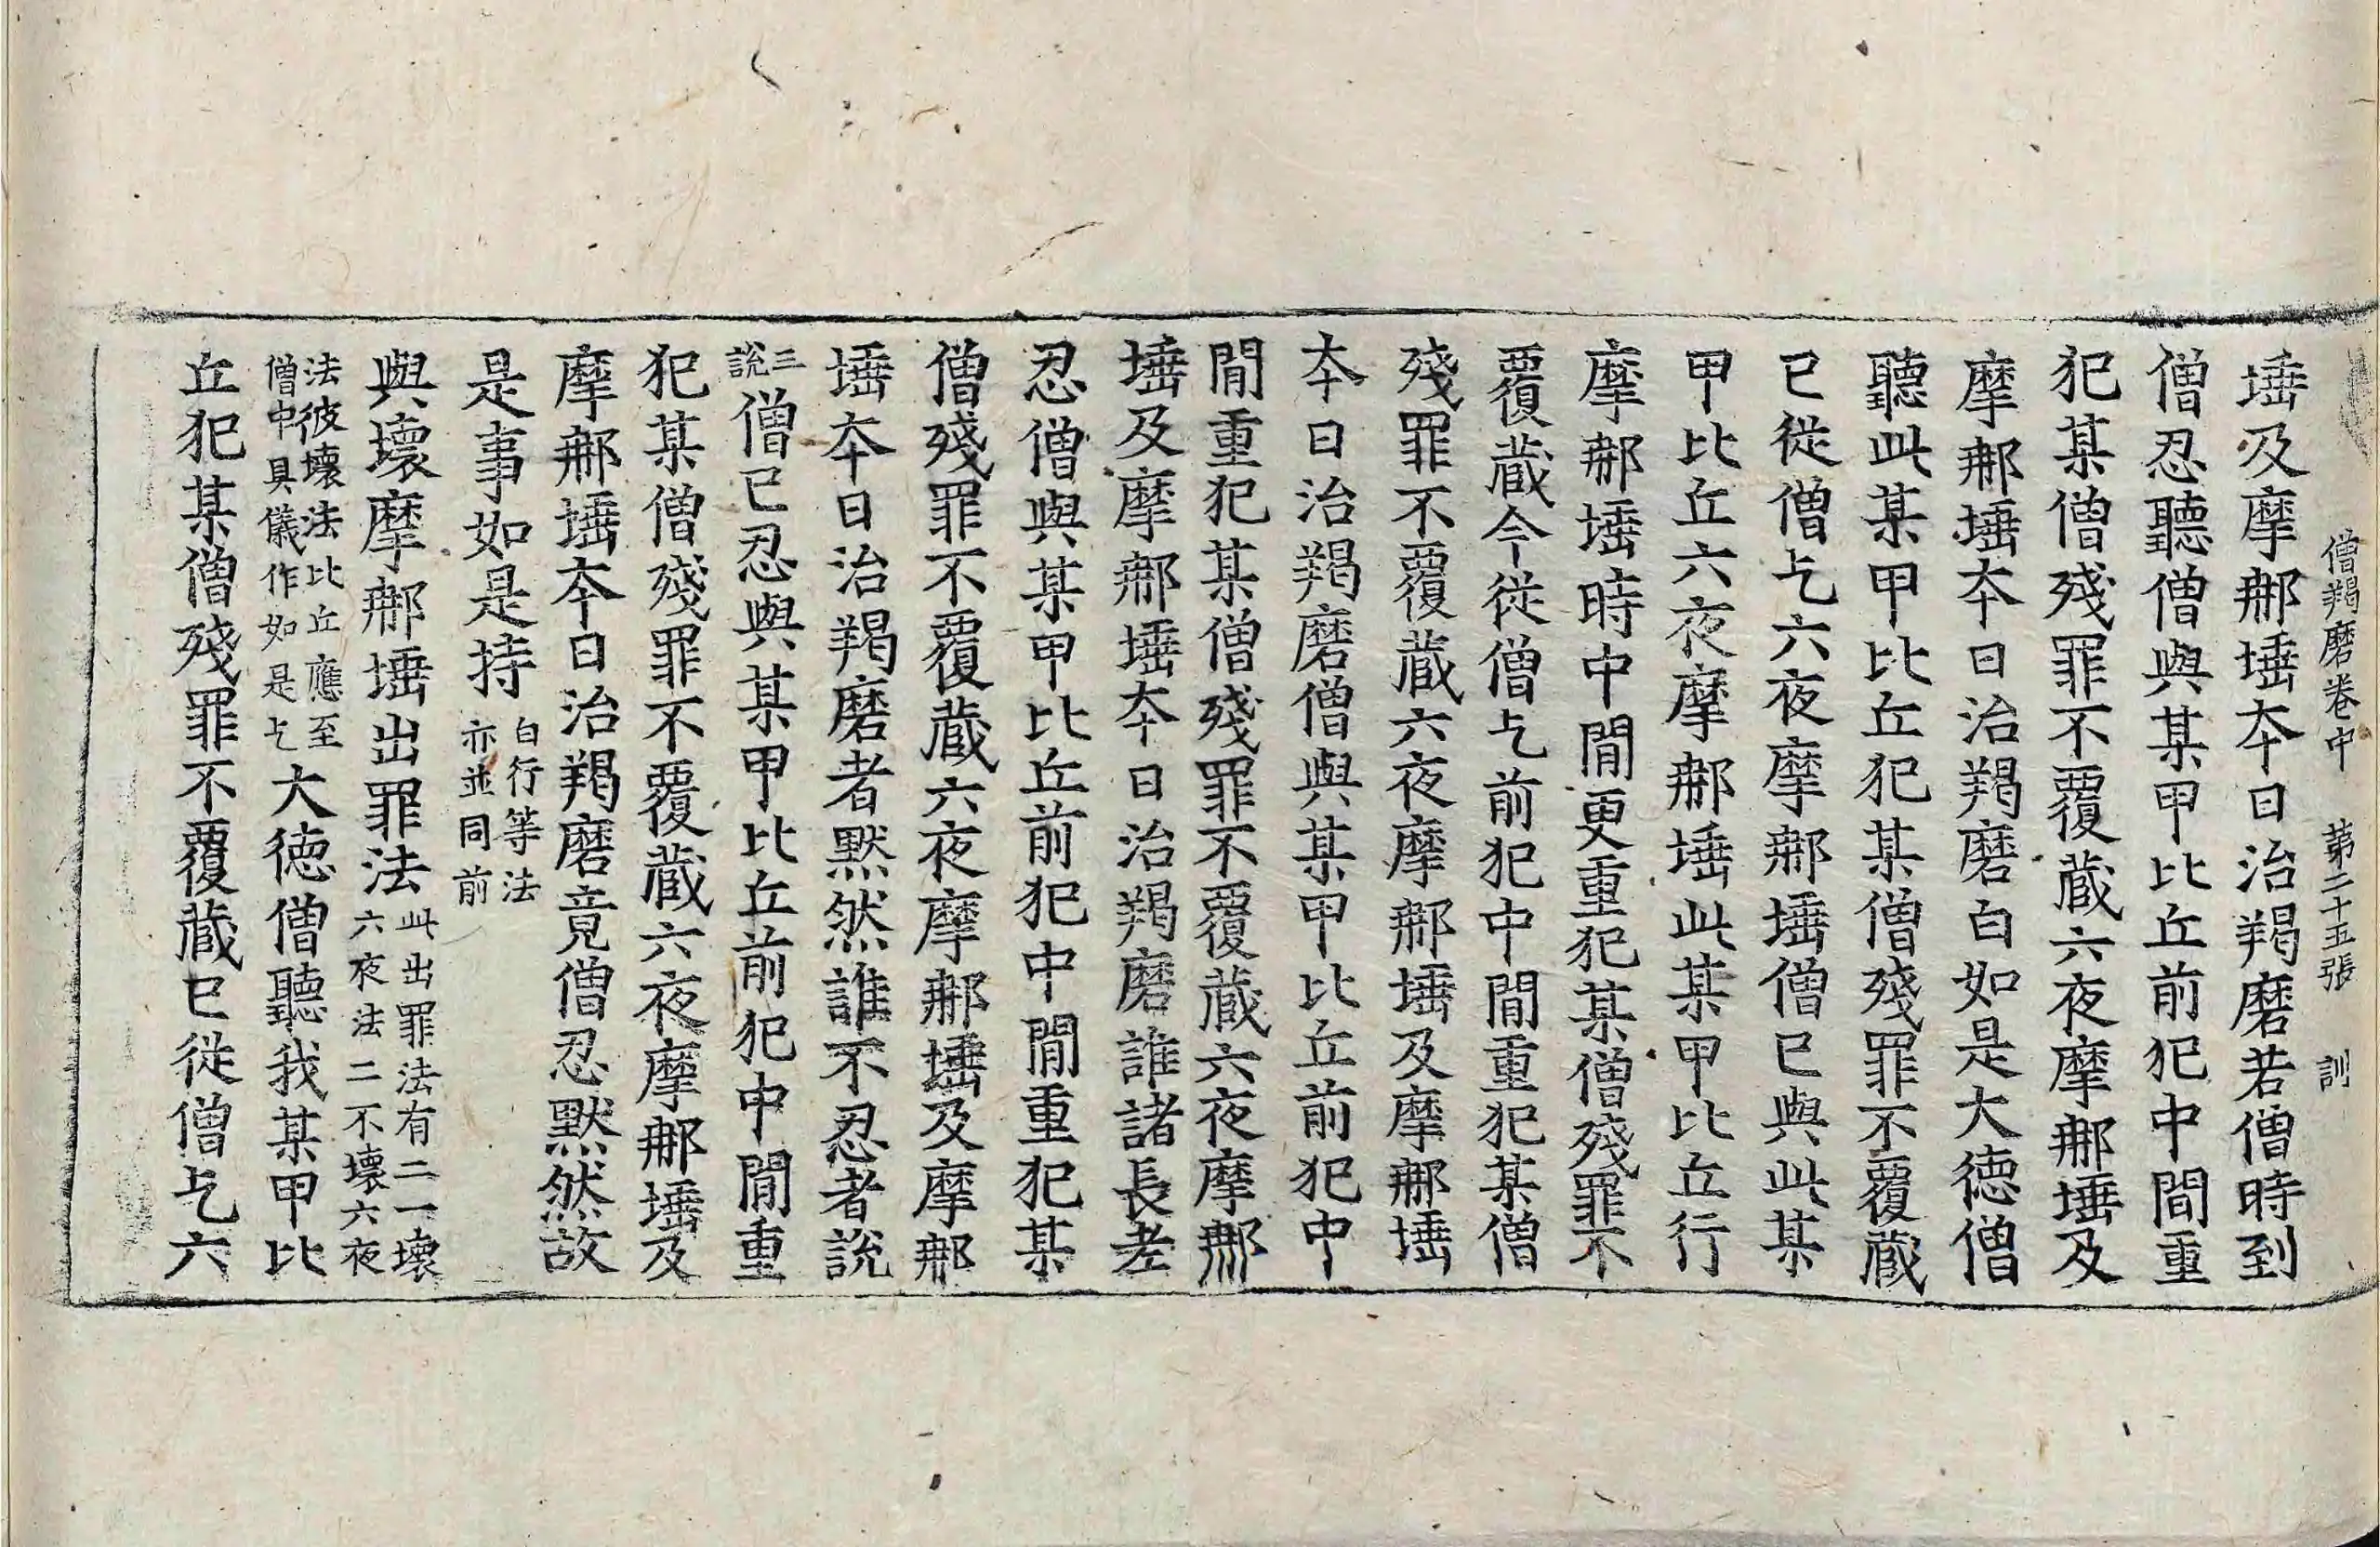 僧羯磨卷中 第二十五張 訓
埵及摩那埵夲日治羯磨若僧時到
僧忍聽僧與某甲比丘前犯中間重
犯某僧殘罪不覆藏六夜摩那埵及
摩那埵夲日治羯磨白如是大德僧
聽此某甲比丘犯某僧殘罪不覆藏
已從僧乞六夜摩那埵僧已與此某
甲比丘六夜摩那埵此某甲比丘行
摩那埵時中間更重犯某僧殘罪不
覆藏今從僧乞前犯中間重犯某僧
殘罪不覆藏六夜摩那埵及摩那埵
夲日治羯磨僧與某甲比丘前犯中
間重犯某僧殘罪不覆藏六夜摩那
埵及摩那埵夲日治羯磨誰諸長老
忍僧與某甲比丘前犯中間重犯某
僧殘罪不覆藏六夜摩那埵及摩那
埵夲日治羯磨者默然誰不忍者說
三說僧已忍與某甲比丘前犯中間重
犯某僧殘罪不覆藏六夜摩那埵及
摩那埵夲日治羯磨竟僧忍默然故
是事如是持白行等法亦並同前
與壞摩那埵出罪法此出罪法有二一壞六夜法二不壞六夜
法彼壞法比丘應至僧中具儀作如是乞大德僧聽我某甲比
丘犯某僧殘罪不覆藏已從僧乞六